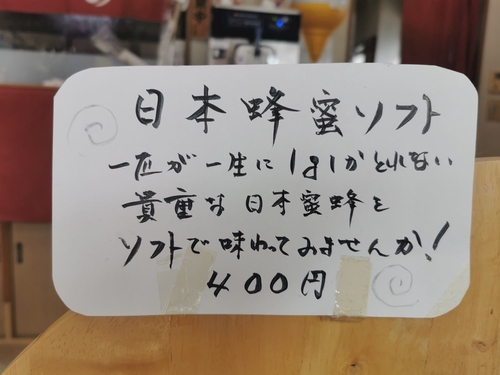 日本蜂蜜ソフト
一匹が一生に1g1かとれない
貴重な日本蜜蜂を
ソフトで味わってみませんか!
400円